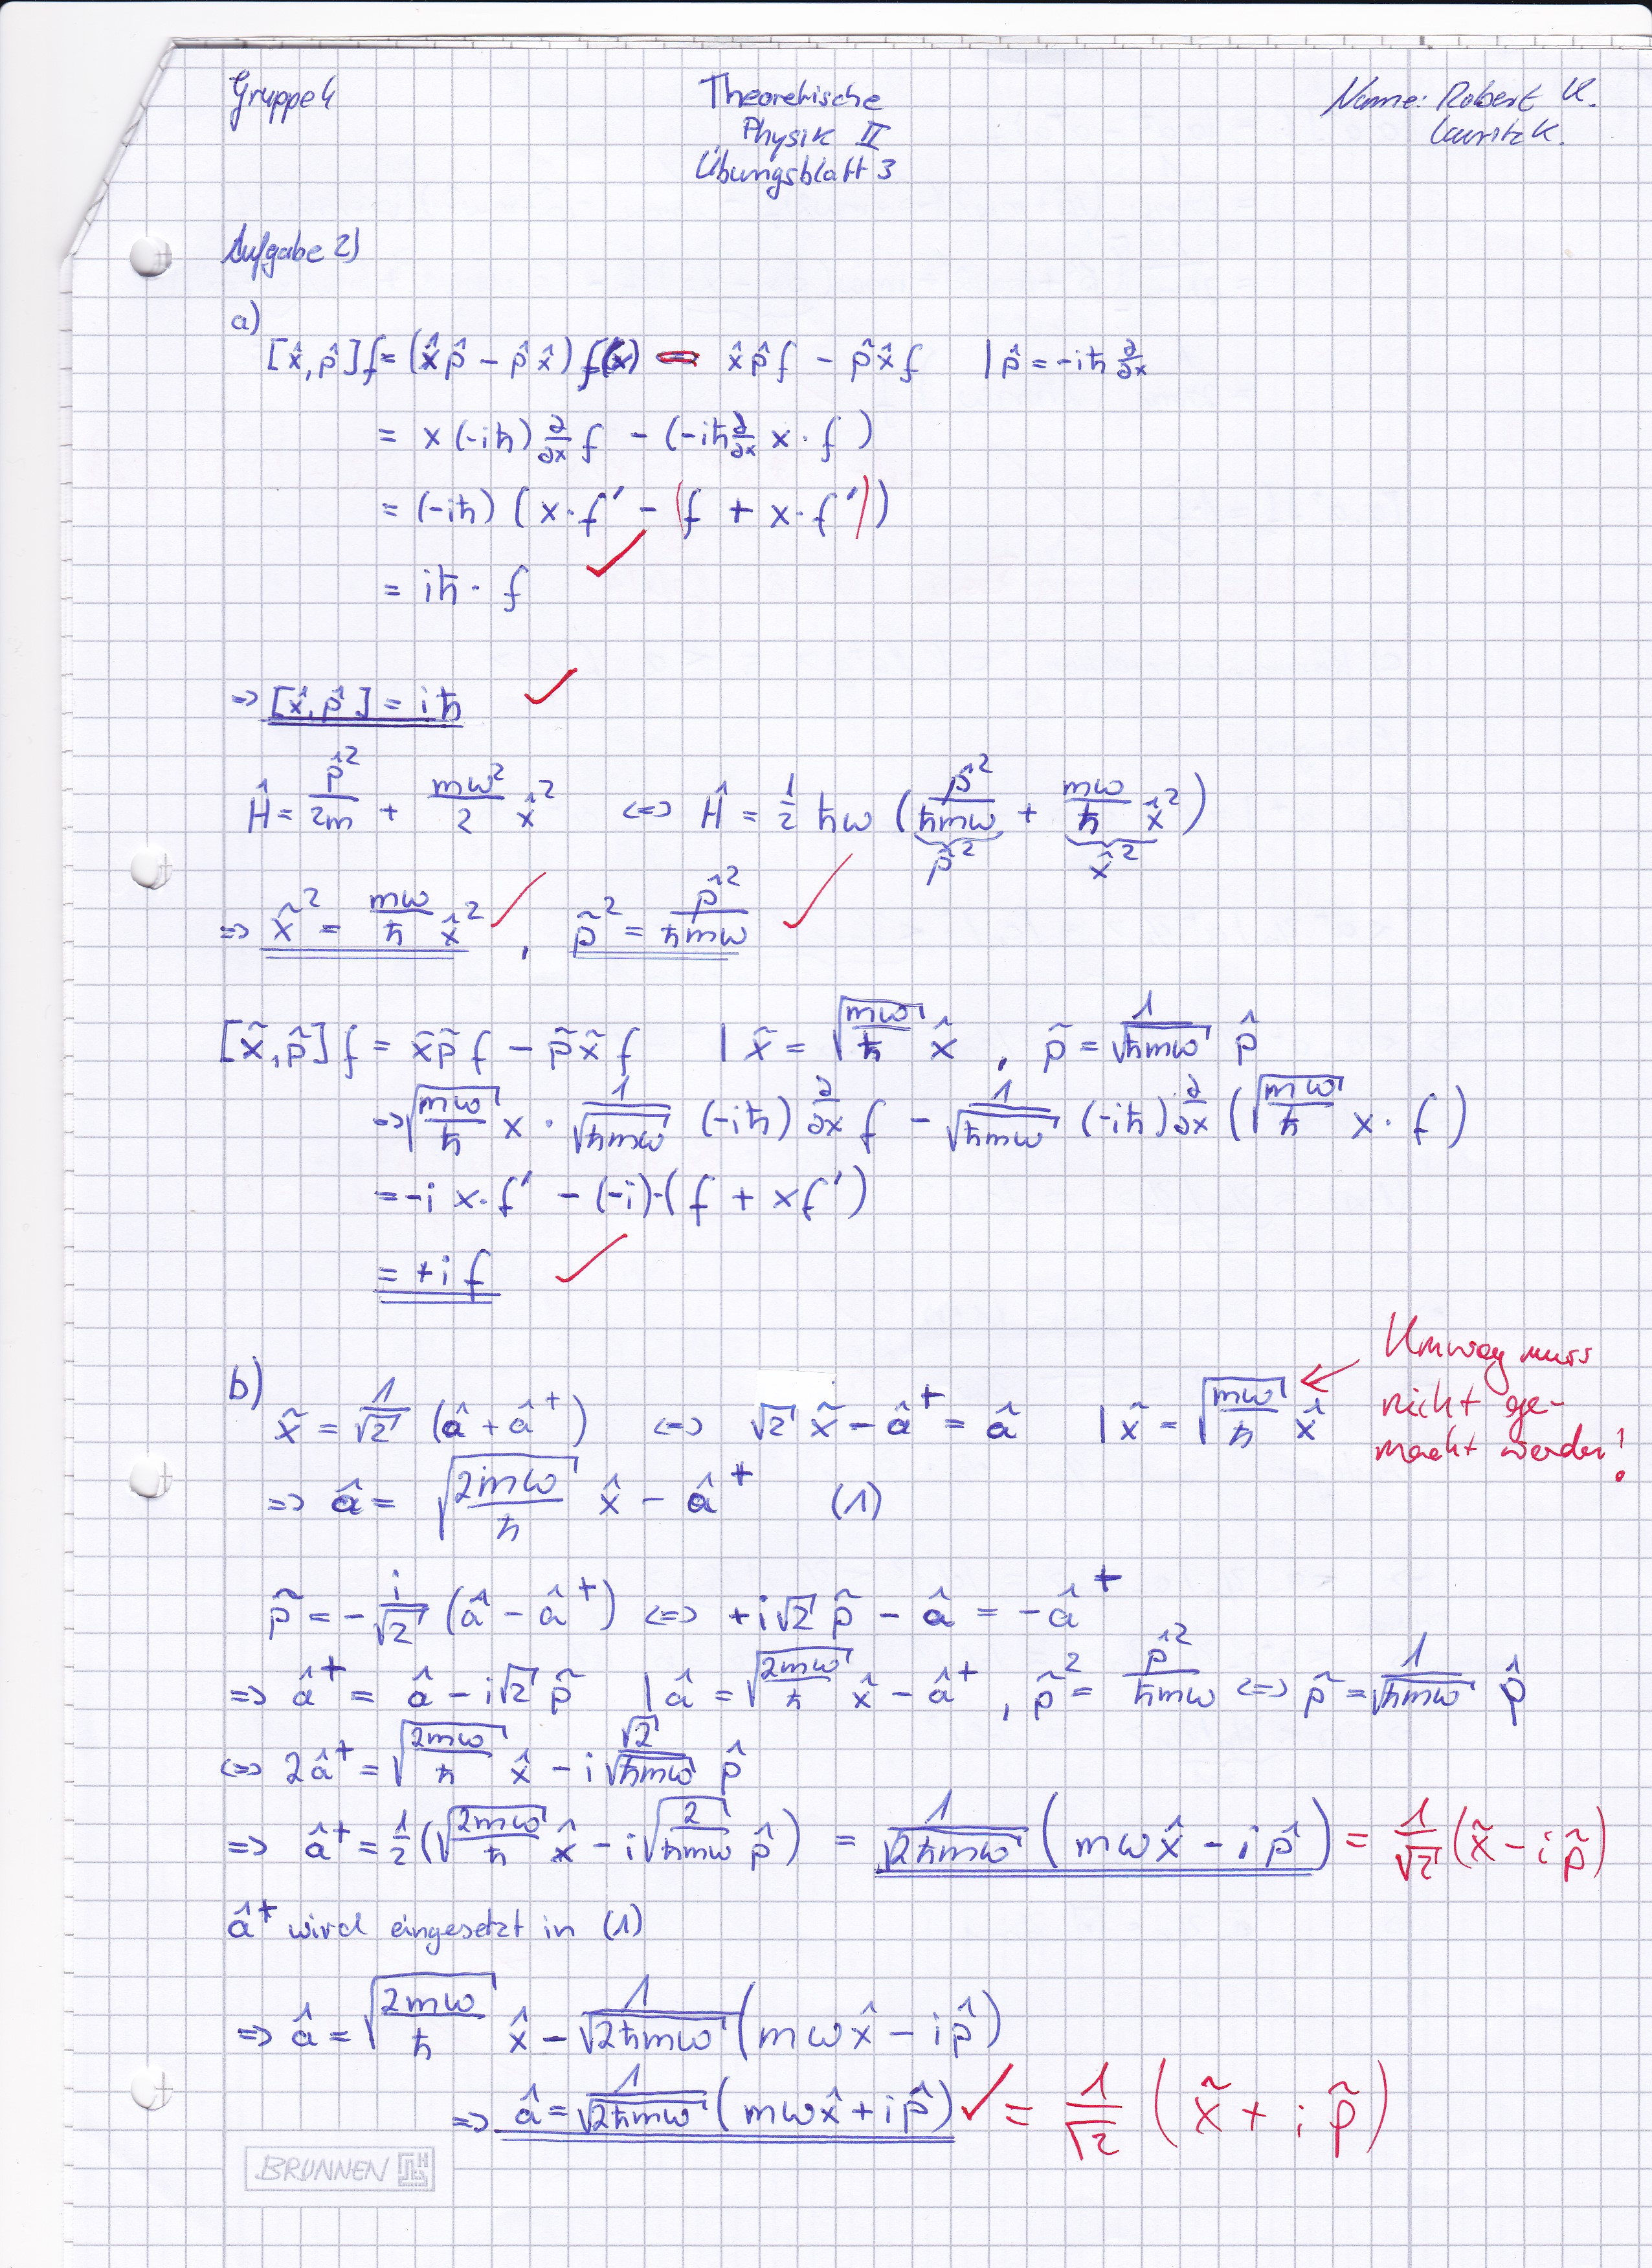 Gruppe 4
Theoretische
Physik II
Übungsblatt 3
Name: Robert K.
Lauritz K.
Aufgabe 2)
a)
[x̂, p̂]f = (x̂p̂ - p̂x̂) f(x) = x̂p̂f - p̂x̂f | p̂ = -iħ ∂/∂x
= x(-iħ) ∂/∂x f - (-iħ ∂/∂x x·f)
= (-iħ) (x·f' - (f + x·f'))
= iħ · f ✓
=> [x̂, p̂] = iħ ✓
Ĥ = p̂²/2m + mω²/2 x̂² <=> Ĥ = 1/2 ħω (p̂²/ħmω + mω/ħ x̂²)
p̃² x̃²
=> x̃² = mω/ħ x̂² ✓, p̃² = p̂²/ħmω ✓
[x̃, p̃] f = x̃p̃f - p̃x̃f | x̃ = √(mω/ħ) x̂, p̃ = 1/√(ħmω) p̂
=> √(mω/ħ) x · 1/√(ħmω) (-iħ) ∂/∂x f - 1/√(ħmω) (-iħ) ∂/∂x (√(mω/ħ) x·f)
= -i x·f' - (-i)·(f + xf')
= +i f ✓
b)
x̃ = 1/√2 (â + â†) <=> √2 x̃ - â† = â | x̃ = √(mω/ħ) x̂
Umweg muss
nicht ge-
macht werden!
=> â = √(2mω/ħ) x̂ - â† (1)
p̃ = -i/√2 (â - â†) <=> +i√2 p̃ - â = -â†
=> â† = â - i√2 p̃ | â = √(2mω/ħ) x̂ - â†, p̃² = p̂²/ħmω <=> p̃ = 1/√(ħmω) p̂
<=> 2â† = √(2mω/ħ) x̂ - i √2/√(ħmω) p̂
=> â† = 1/2 (√(2mω/ħ) x̂ - i√(2/ħmω) p̂) = 1/√(2ħmω) (mωx̂ - ip̂) = 1/√2 (x̃ - ip̃)
â† wird eingesetzt in (1)
=> â = √(2mω/ħ) x̂ - 1/√(2ħmω) (mωx̂ - ip̂)
=> â = 1/√(2ħmω) (mωx̂ + ip̂) ✓ = 1/√2 (x̃ + ip̃)
BRUNNEN